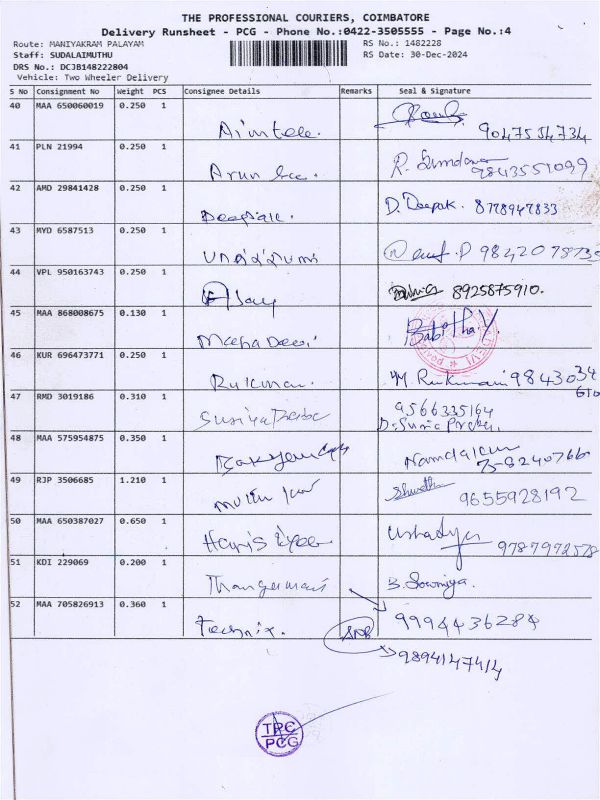 THE PROFESSIONAL COURIERS, COIMBATORE
Delivery Runsheet - PCG - Phone No.:0422-3505555 - Page No.:4
Route: MANIYAKRAM PALAYAM RS No.: 1482228
Staff: SUDALAIMUTHU RS Date: 30-Dec-2024
DRS No.: DCJB148222804
Vehicle: Two Wheeler Delivery
S No Consignment No Weight PCS Consignee Details Remarks Seal & Signature
40 MAA 650060019 0.250 1
9047534734
41 PLN 21994 0.250 1
Arun
R.
9843551099
42 AMD 29841428 0.250 1
Deepak.
D. Deepak. 8778947833
43 MYD 6587513 0.250 1
P 9842078735
44 VPL 950163743 0.250 1
Ajay
8925875910.
45 MAA 868008675 0.130 1
Meena Devi
Babitha.Y
46 KUR 696473771 0.250 1
Rukman.
M. Rukmani 9843034
47 RMD 3019186 0.310 1
9566335164
48 MAA 575954875 0.350 1
75-8240766
49 RJP 3506685 1.210 1
Shwetha 9655928192
50 MAA 650387027 0.650 1
Haris
9787972578
51 KDI 229069 0.200 1
Thangamani
B. Sowmiya.
52 MAA 705826913 0.360 1
Technix.
9994436284
9894147414
TPC
PCG